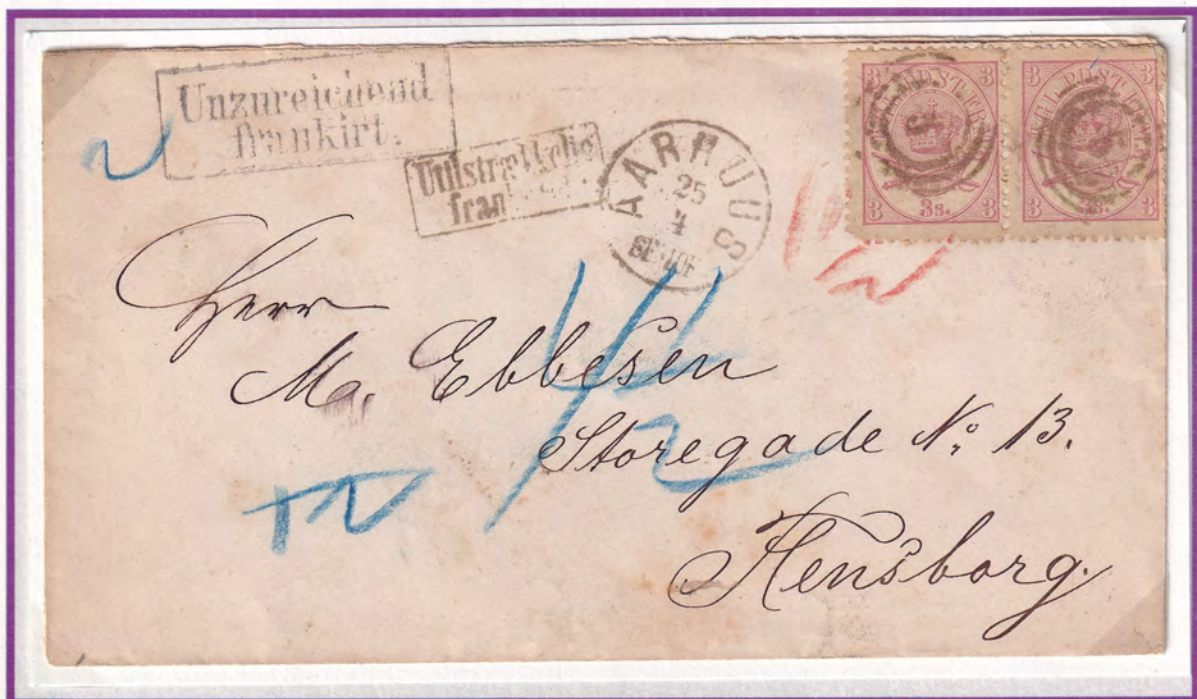 Unzureichend
frankirt.
Utilstrækkelig
fran
AARHUUS
25
4
3 3
3 3s. 3
3 3
3 3
Herr
Ma. Ebbesen
Storegade No 13.
Flensborg.